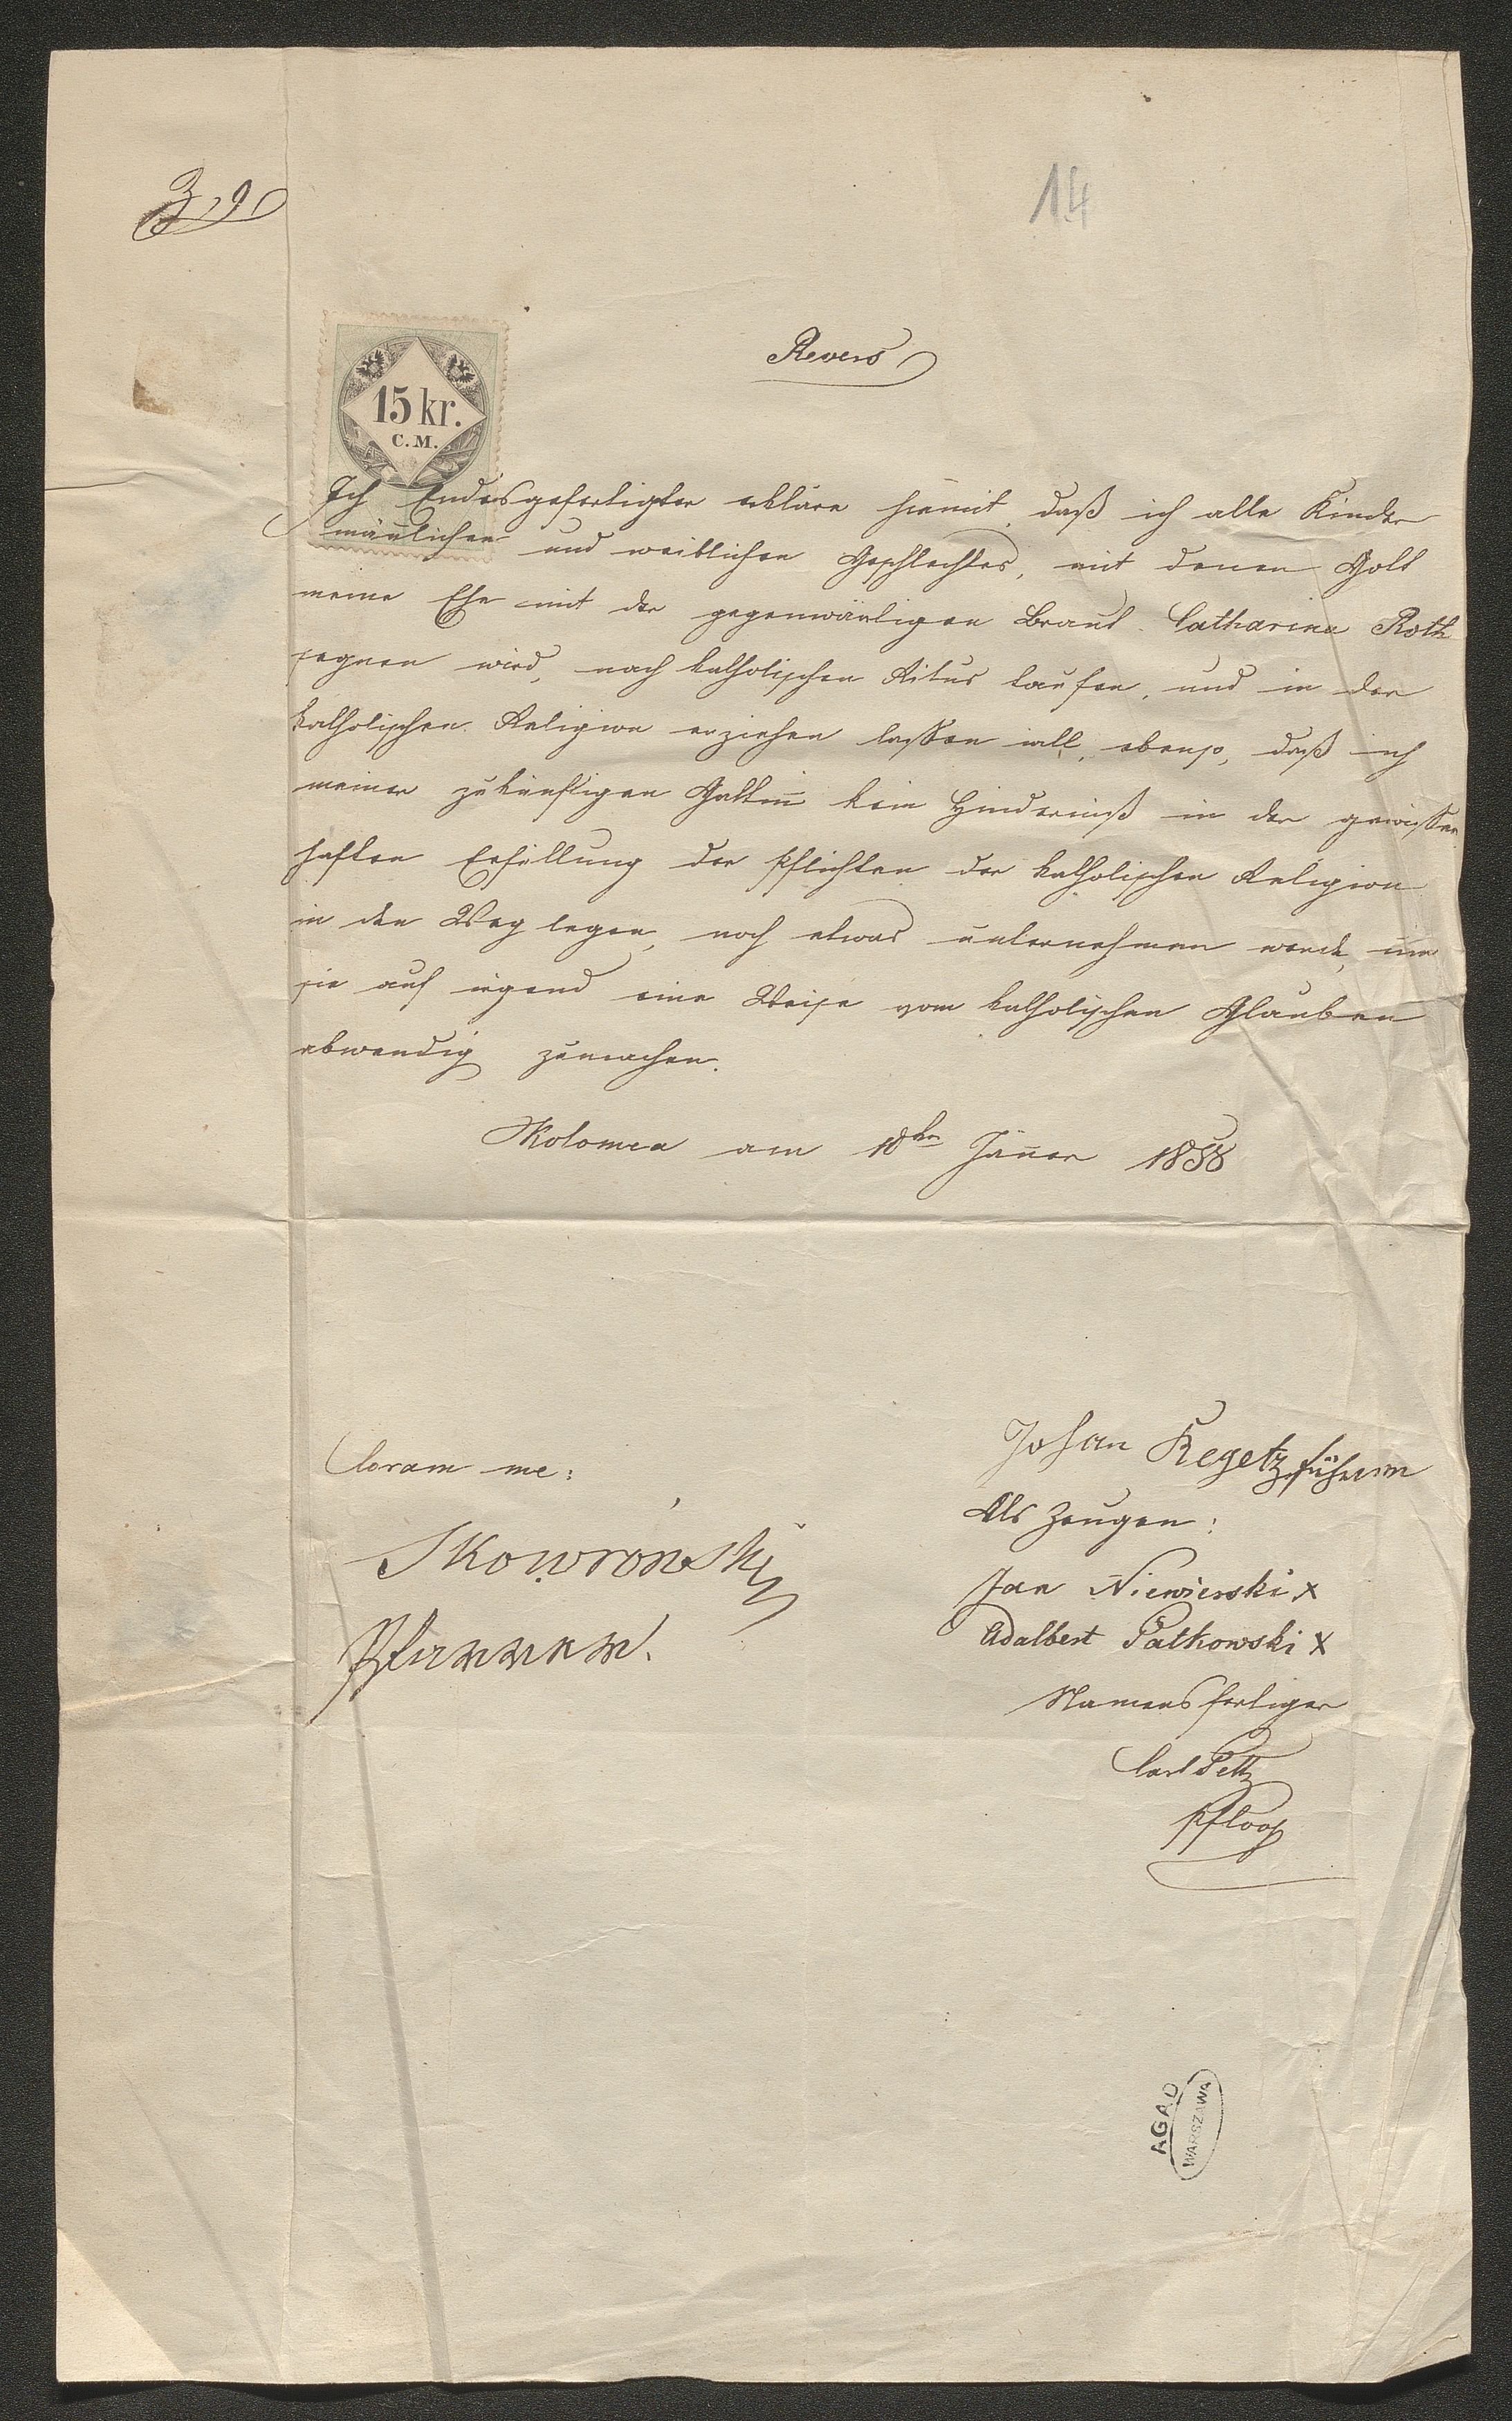 14
Revers
15 kr.
C.M.
Ich Endesgefertigter erkläre hiemit, daß ich alle Kinder
mänlichen und weiblichen Geschlechtes, mit denen Gott
meine Ehe mit der gegenwärtigen Braut Catharina Roth
segnen wird, nach katholischen Ritus taufen, und in der
katholischen Religion erziehen lassen will, ebenso, daß ich
meiner zukünftigen Gattin̄ kein Hinderniß in der gewissen
haften Erfüllung der Pflichten der katholischen Religion
in den Weg legen, noch etwas unternehmen werde, um
sie auf irgend eine Weise vom katholischen Glauben
abwendig zumachen.
Kolomea am 18ten Jäner 1858
Johan Kegetz
Coram me:
Als Zeugen:
Skowroński
Jan Niewierski x
Adalbert Patkowski x
Pfarrer
Namensfertiger
Carl Peltz
AGAD
WARSZAWA